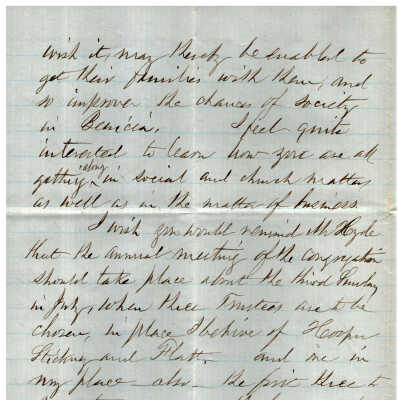 wish it, may thereby be enabled to
get their families with them, and
so improve the chances of society
in Benicia. I feel quite
interested to learn how you are all
getting along in social and church matters
as well as in the matter of business
I wish you would remind Mr Hyde
that the annual meeting of the congregation
should take place about the third Sunday
in July, when three Trustees are to be
chosen, in place I believe of Hooper
Stickney and Flatt. and me in
my place also - the first three to